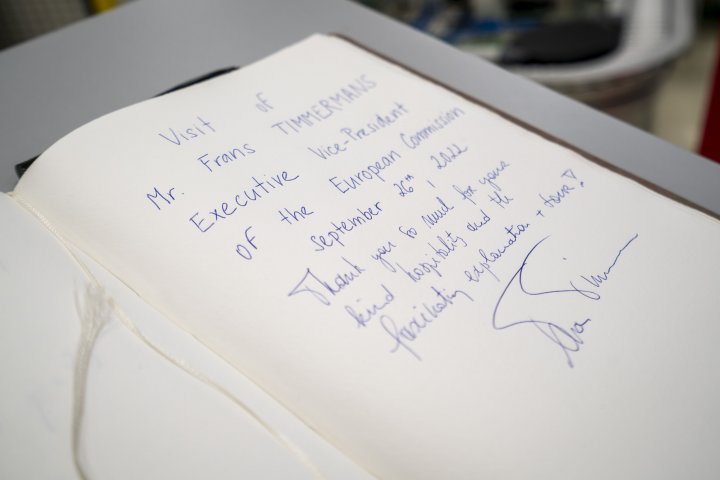 Visit of
Mr. Frans TIMMERMANS
Executive Vice-President
of the European Commission
September 26th, 2022
Thank you so much for your
kind hospitality and the
fascinating explanation + tour!